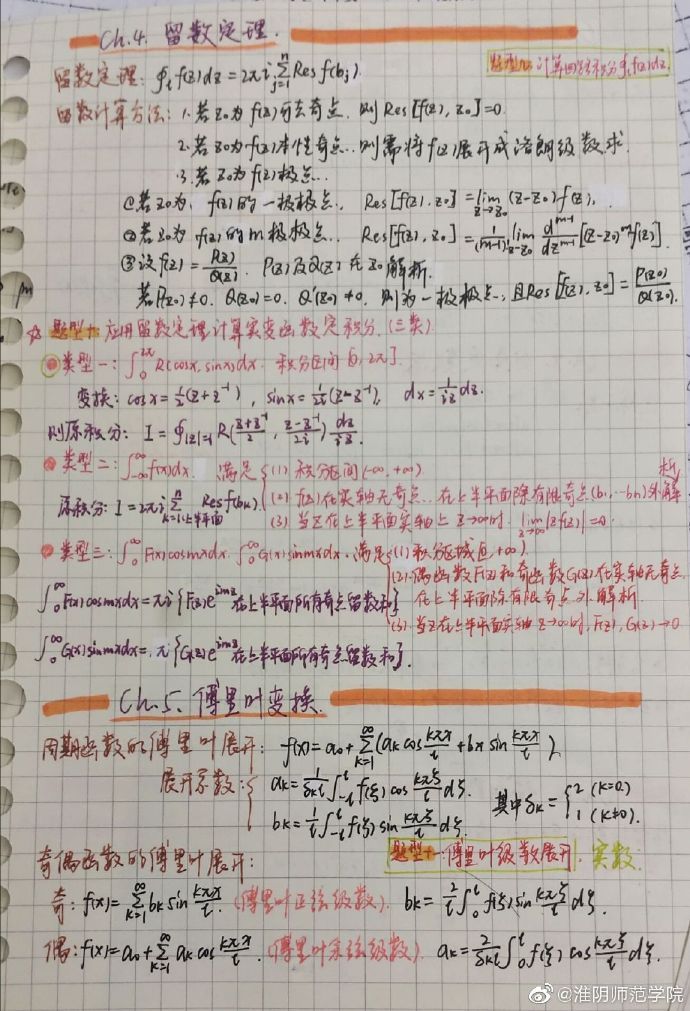 Ch.4. 留数定理.
留数定理: ∮_l f(z)dz = 2πi ∑_{j=1}^{n} Res f(b_j).
计算回路积分 ∮_l f(z)dz.
留数计算方法: 1.若z₀为f(z)可去奇点, 则 Res[f(z), z₀]=0.
2.若z₀为f(z)本性奇点, 则需将f(z)展开成洛朗级数求.
3.若z₀为f(z)极点.
①若z₀为, f(z)的一极极点, Res[f(z), z₀] = lim_{z→z₀} (z-z₀)f(z),
②若z₀为 f(z)的m极极点, Res[f(z), z₀] = 1/(m-1)! lim_{z→z₀} d^{m-1}/dz^{m-1} [(z-z₀)^m f(z)]
③设f(z)= P(z)/Q(z), P(z)及Q(z)在z₀解析.
若P(z₀)≠0, Q(z₀)=0, Q'(z₀)≠0, 则为一极极点, 且Res[f(z), z₀] = P(z₀)/Q(z₀).
☆ 题型十: 应用留数定理计算实变函数定积分. (三类)
类型一: ∫_0^{2π} R(cosx, sinx)dx. 积分区间[0, 2π].
变换: cosx = 1/2(z+z⁻¹), sinx = 1/2i(z-z⁻¹), dx = 1/iz dz.
则原积分: I = ∮_{|z|=1} R(z+z⁻¹/2, z-z⁻¹/2i) dz/iz.
类型二: ∫_{-∞}^{∞} f(x)dx. 满足 (1) 积分区间(-∞, +∞)
(2) f(z)在实轴无奇点, 在上半平面除有限奇点(b₁, …bₙ)外解析
原积分: I = 2πi ∑_{k=1,上半平面}^{n} Res f(b_k)
(3) 当z在上半平面实轴上 z→∞时, lim_{z→∞} |zf(z)| = 0.
类型三: ∫_0^∞ F(x)cosmxdx, ∫_0^∞ G(x)sinmxdx. 满足 (1) 积分区域[0, +∞)
(2). 偶函数F(z)和奇函数G(z)在实轴无奇点
在上半平面除有限奇点外解析.
∫_0^∞ F(x)cosmxdx = πi {F(z)e^{imz}在上半平面所有奇点留数和}
(3). 当z在上半平面实轴z→∞时, F(z), G(z)→0
∫_0^∞ G(x)sinmxdx = π {G(z)e^{imz}在上半平面所有奇点留数和}.
Ch.5. 傅里叶变换.
周期函数的傅里叶展开: f(x) = a₀ + ∑_{k=1}^{∞} (a_k cos kπx/l + b_k sin kπx/l),
展开系数: a_k = 1/δ_k l ∫_{-l}^{l} f(ξ) cos kπξ/l dξ.
b_k = 1/l ∫_{-l}^{l} f(ξ) sin kπξ/l dξ.
其中δ_k = {2 (k=0.) 1 (k≠0).
奇偶函数的傅里叶展开:
题型十一 傅里叶级数展开. 实数.
奇: f(x) = ∑_{k=1}^{∞} b_k sin kπx/l. (傅里叶正弦级数). b_k = 2/l ∫_0^l f(ξ) sin kπξ/l dξ.
偶: f(x) = a₀ + ∑_{k=1}^{∞} a_k cos kπx/l. (傅里叶余弦级数). a_k = 2/δ_k l ∫_0^l f(ξ) cos kπξ/l dξ.
@淮阴师范学院